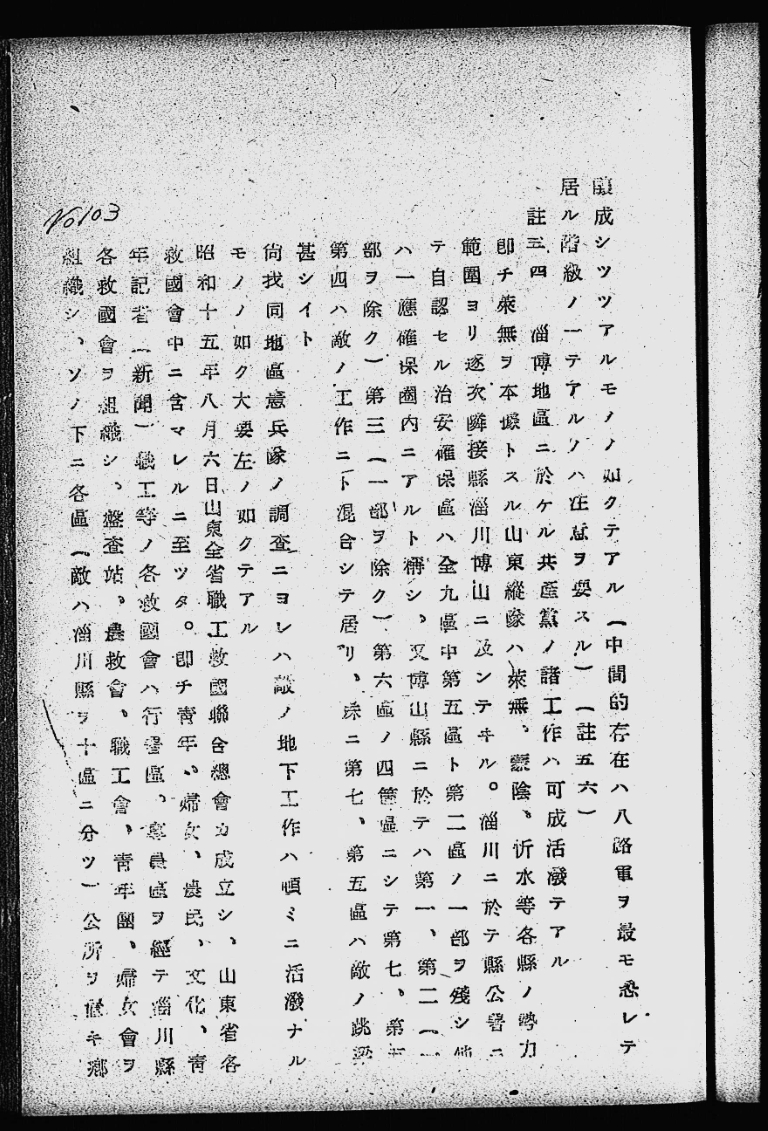 釀成シツツアルモノノ如クテアル(中間的存在ハ八路軍ヲ最モ恐レテ
居ル階級ノ一テアルノハ注意ヲ要スル)(註五六)
註三四 淄博地區ニ於ケル共產黨ノ諸工作ハ可成活潑テアル
卽チ萊無ヲ本據トスル山東縱隊ハ萊無、蒙陰、沂水等各縣ノ勢力
範圍ヨリ逐次隣接縣淄川博山ニ及ンテヰル。淄川ニ於テ縣公署ニ
テ自認セル治安確保區ハ全九區中第五區ト第二區ノ一部ヲ殘シ他
ハ一應確保圈內ニアルト稱シ、又博山縣ニ於テハ第一、第二(一
部ヲ除ク)第三(一部ヲ除ク)第六區ノ四箇區ニシテ第七、第五
第四ハ敵ノ工作ニト混合シテ居リ、殊ニ第七、第五區ハ敵ノ跳梁
甚シイト
尙找同地區憲兵隊ノ調査ニヨレハ敵ノ地下工作ハ頓ミニ活潑ナル
モノノ如ク大要左ノ如クテアル
昭和十五年八月六日山東全省職工救國聯合總會カ成立シ、山東省各
救國會中ニ含マレルニ至ツタ。卽チ靑年、婦女、農民、文化、靑
年記者(新聞)職工等ノ各救國會ハ行署區、專員區ヲ經テ淄川縣
各救國會ヲ組織シ、盤查站、農救會、職工會、靑年團、婦女會ヲ
組織シ、ソノ下ニ各區(敵ハ淄川縣ヲ十區ニ分ツ)公所ヲ置キ鄕
No103